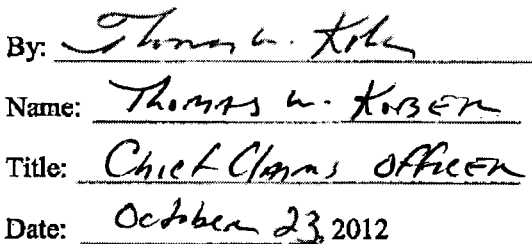 By: Thomas W. Kober
Name: Thomas W. Kober
Title: Chief Claims Officer
Date: October 23, 2012